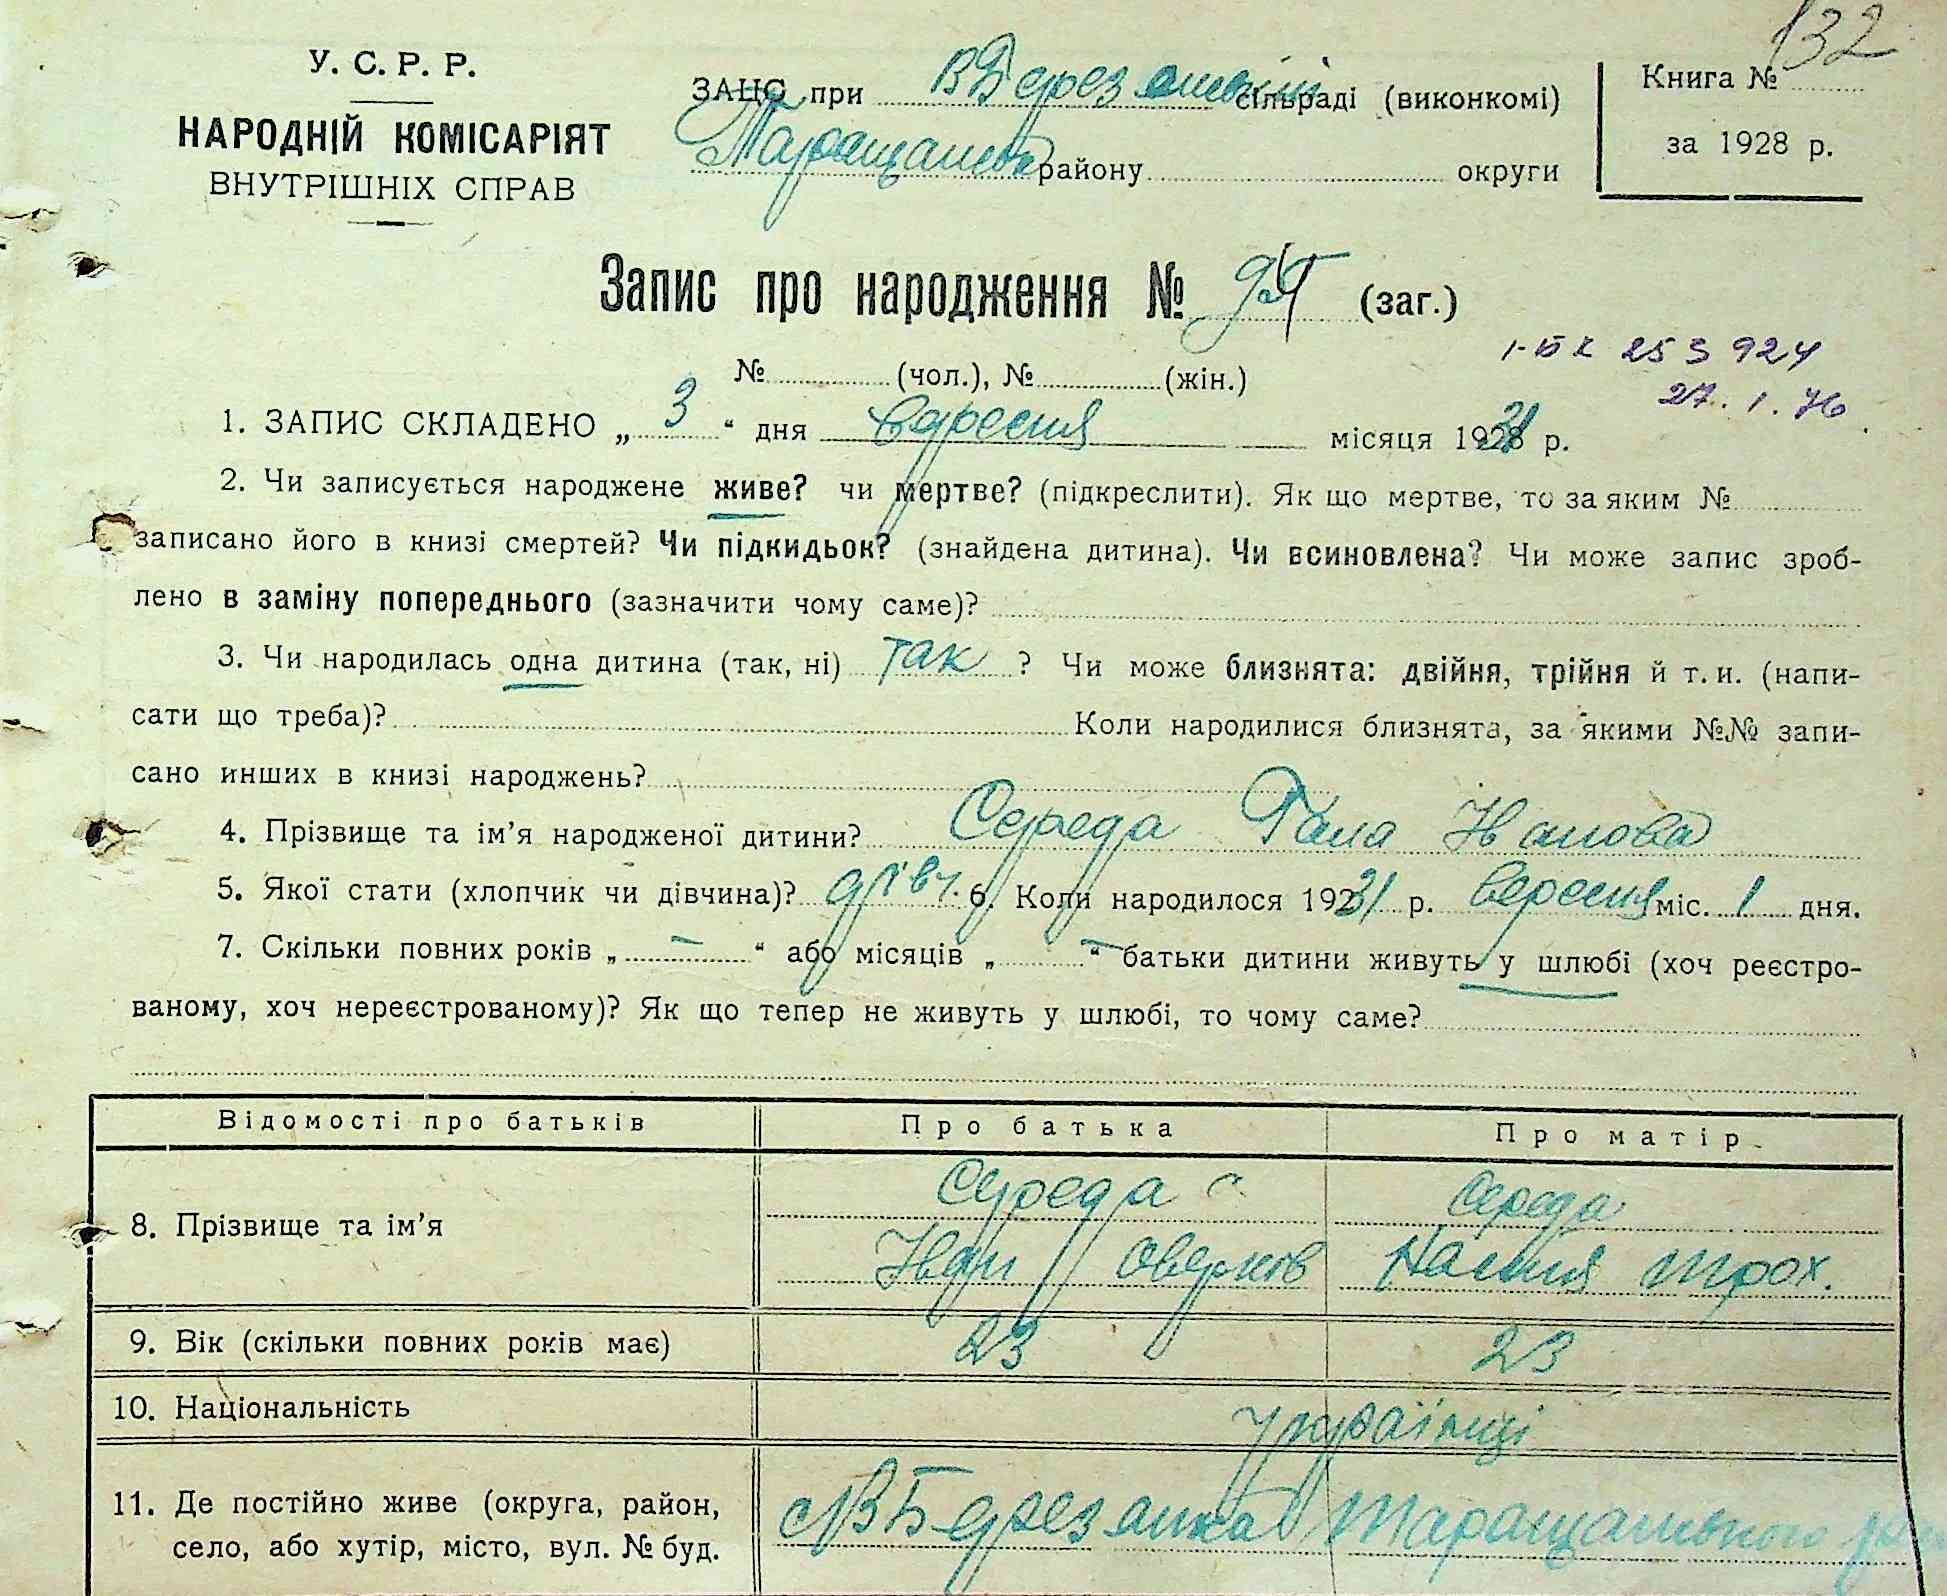 132
У. С. Р. Р.
НАРОДНІЙ КОМІСАРІЯТ
ВНУТРІШНІХ СПРАВ
ЗАЦС при ВБерезанській сільраді (виконкомі)
Таращанськ району округи
Книга №
за 1928 р.
Запис про народження № (заг.)
№ (чол.), № (жін.)
253924
27.1.76
1. ЗАПИС СКЛАДЕНО „ 3 “ дня вересня місяця 1931 р.
2. Чи записується народжене живе? чи мертве? (підкреслити). Як що мертве, то за яким №
записано його в книзі смертей? Чи підкидьок? (знайдена дитина). Чи всиновлена? Чи може запис зроб-
лено в заміну попереднього (зазначити чому саме)?
3. Чи народилась одна дитина (так, ні) так ? Чи може близнята: двійня, трійня й т. и. (напи-
сати що треба)? Коли народилися близнята, за якими №№ запи-
сано инших в книзі народжень?
4. Прізвище та ім’я народженої дитини? Середа Галя Іванова
5. Якої стати (хлопчик чи дівчина)? дівч. 6. Коли народилося 1931 р. вересня міс. 1 дня.
7. Скільки повних років „ — “ або місяців „ — “ батьки дитини живуть у шлюбі (хоч реєстро-
ваному, хоч нереєстрованому)? Як що тепер не живуть у шлюбі, то чому саме?
Відомості про батьків Про батька Про матір
8. Прізвище та ім’я Середа Середа
Іван Оверков Настя Трох.
9. Вік (скільки повних років має) 23 23
10. Національність українці
11. Де постійно живе (округа, район,
село, або хутір, місто, вул. № буд.
с ВБерезанка Таращанського